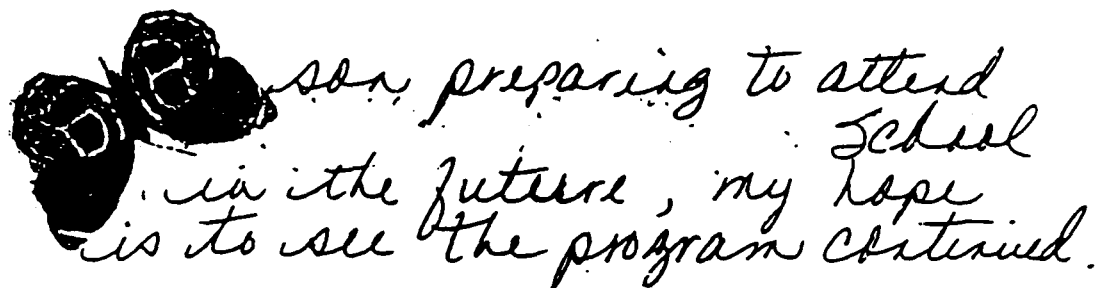 son preparing to attend
School
in the future, my hope
is to see the program continued.